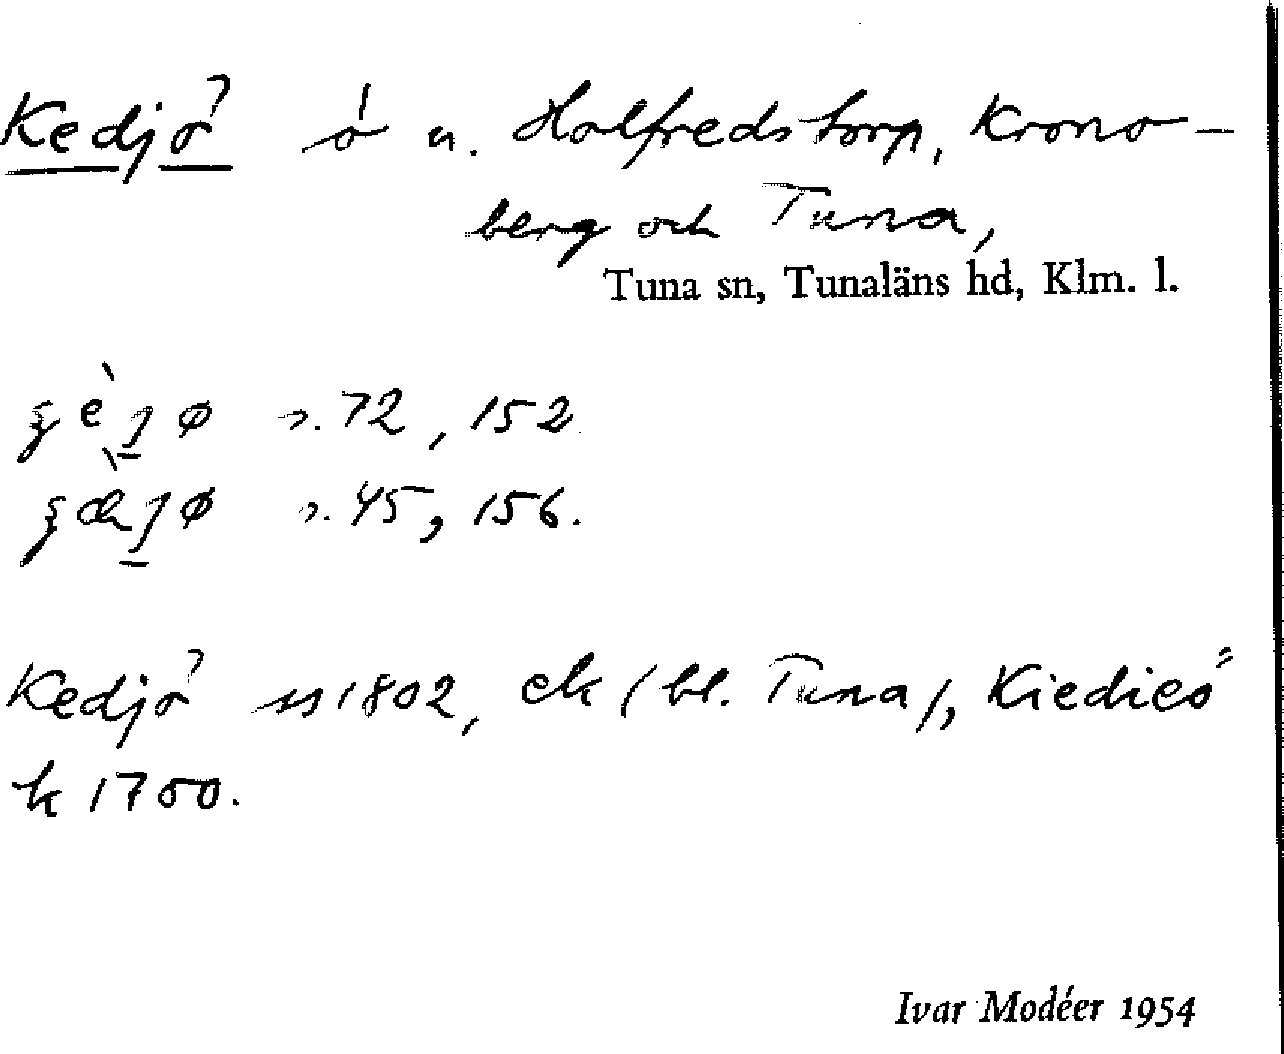 Kedjö ö u. Holfredstorp, Krono-
berg och Tuna,
Tuna sn, Tunaläns hd, Klm. l.
72, 152
45, 156.
Kedjö 1802, ek (bl. Tuna), Kiedieö
k 1700.
Ivar Modéer 1954